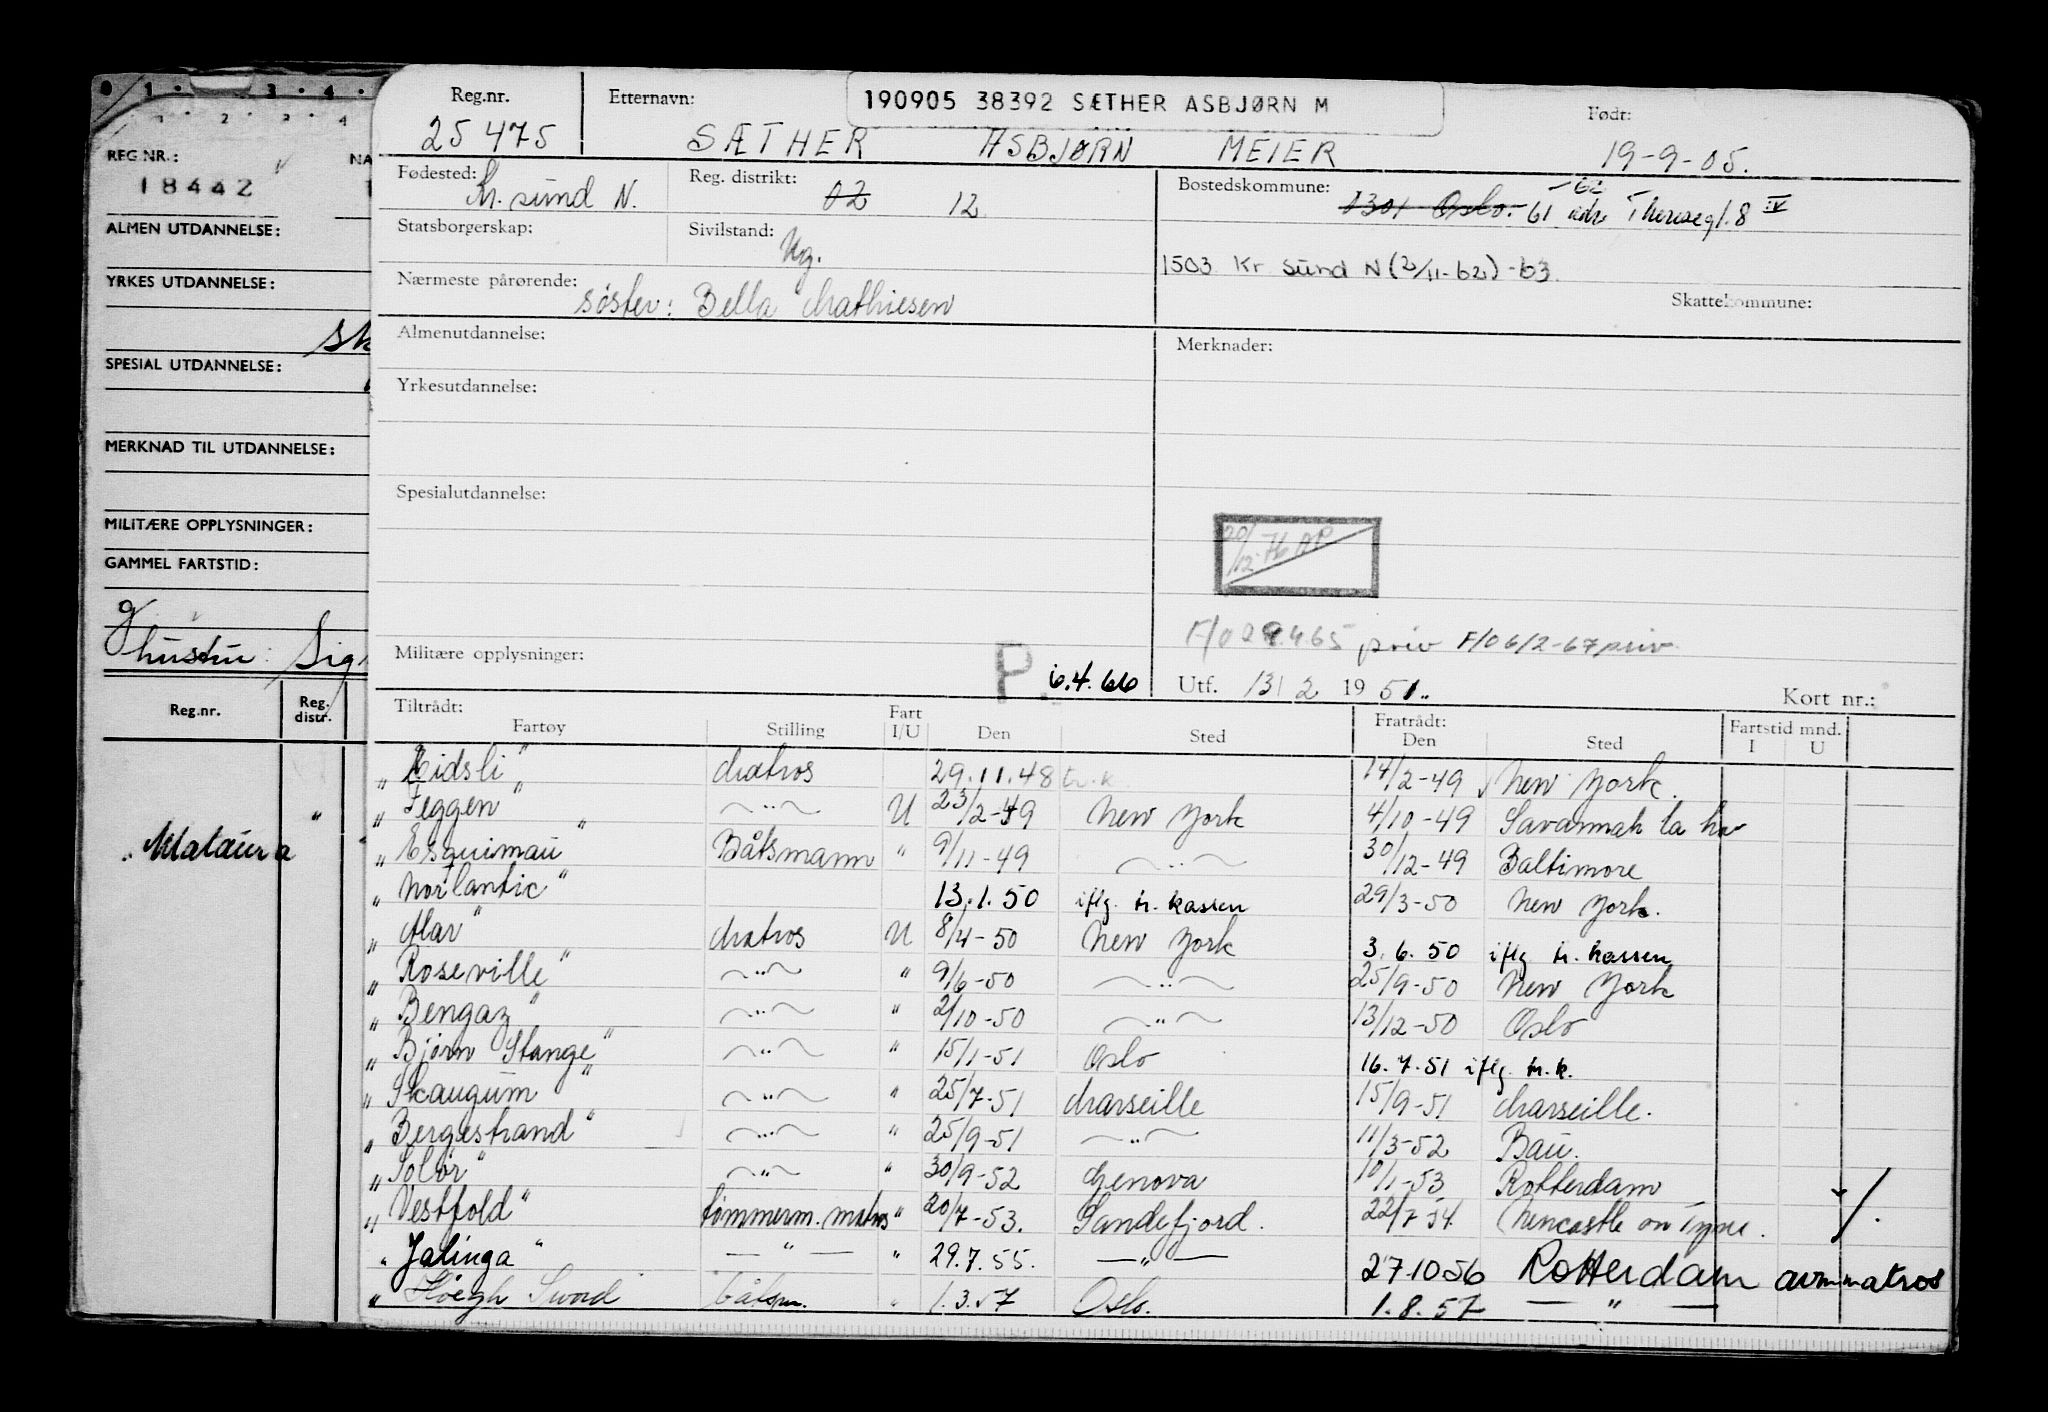 190905 38392 SÆTHER ASBJØRN M
Reg.nr. Etternavn: Født:
25475 SÆTHER ASBJØRN MEIER 19-9-05.
Fødested: Kr. sund N. Reg. distrikt: 02 12 Bostedskommune: 0301 Oslo. -61 -62 adr. Theresegt. 8 IV
Statsborgerskap: Sivilstand: Ug.
1503 Kr sund N (2/11-62) -63.
Nærmeste pårørende: søster: Bella Mathiesen
Skattekommune:
Almenutdannelse: Merknader:
Yrkesutdannelse:
Spesialutdannelse:
20/12-76 AP
F/o 29.4.65 priv F/o 6/2-67 priv
Militære opplysninger: P. 6.4.66 Utf. 13/2 1951. Kort nr.:
Tiltrådt: Fratrådt: Fartstid mnd.
Fartøy Stilling Fart I/U Den Sted Den Sted I U
"Lidsli" Matros 29.11.48 tr.k. 14/2-49 New York.
"Feggen" —"— U 23/2-49 New York 4/10-49 Savannah la
"Esquimau" Båtsmann " 9/11-49 —"— 30/12-49 Baltimore
"Norlantic" 13.1.50 iflg. tr. kassen 29/3-50 New York.
"Mar" Matros U 8/4-50 New York 3.6.50 iflg tr. kassen
"Roseville" —"— " 9/6-50 —"— 25/9-50 New York
"Bengaz" —"— " 2/10-50 —"— 13/12-50 Oslo
"Bjørn Stange" —"— " 15/1-51 Oslo 16.7.51 iflg. tr.k.
"Skaugum" —"— " 25/7-51 Marseille 15/9-51 Marseille.
"Bergestrand" —"— " 25/9-51 —"— 11/3-52 Bau.
"Solør" —"— " 30/9-52 Genova 10/1-53 Rotterdam
"Vestfold" tømmerm. matros " 20/7-53. Sandefjord. 22/7 54. Newcastle on Tyne.
"Jalinga" —"— " 29.7.55. —"— 27 10 56 Rotterdam avm matros
"Höegh Sword båtsm. " 1.3.57 Oslo. 1.8.57 —"—
REG.NR.: NA
18442
ALMEN UTDANNELSE:
YRKES UTDANNELSE:
SPESIAL UTDANNELSE:
MERKNAD TIL UTDANNELSE:
MILITÆRE OPPLYSNINGER:
GAMMEL FARTSTID:
g
hustru: Sig
Reg.nr. Reg. distr.
"
Mataura